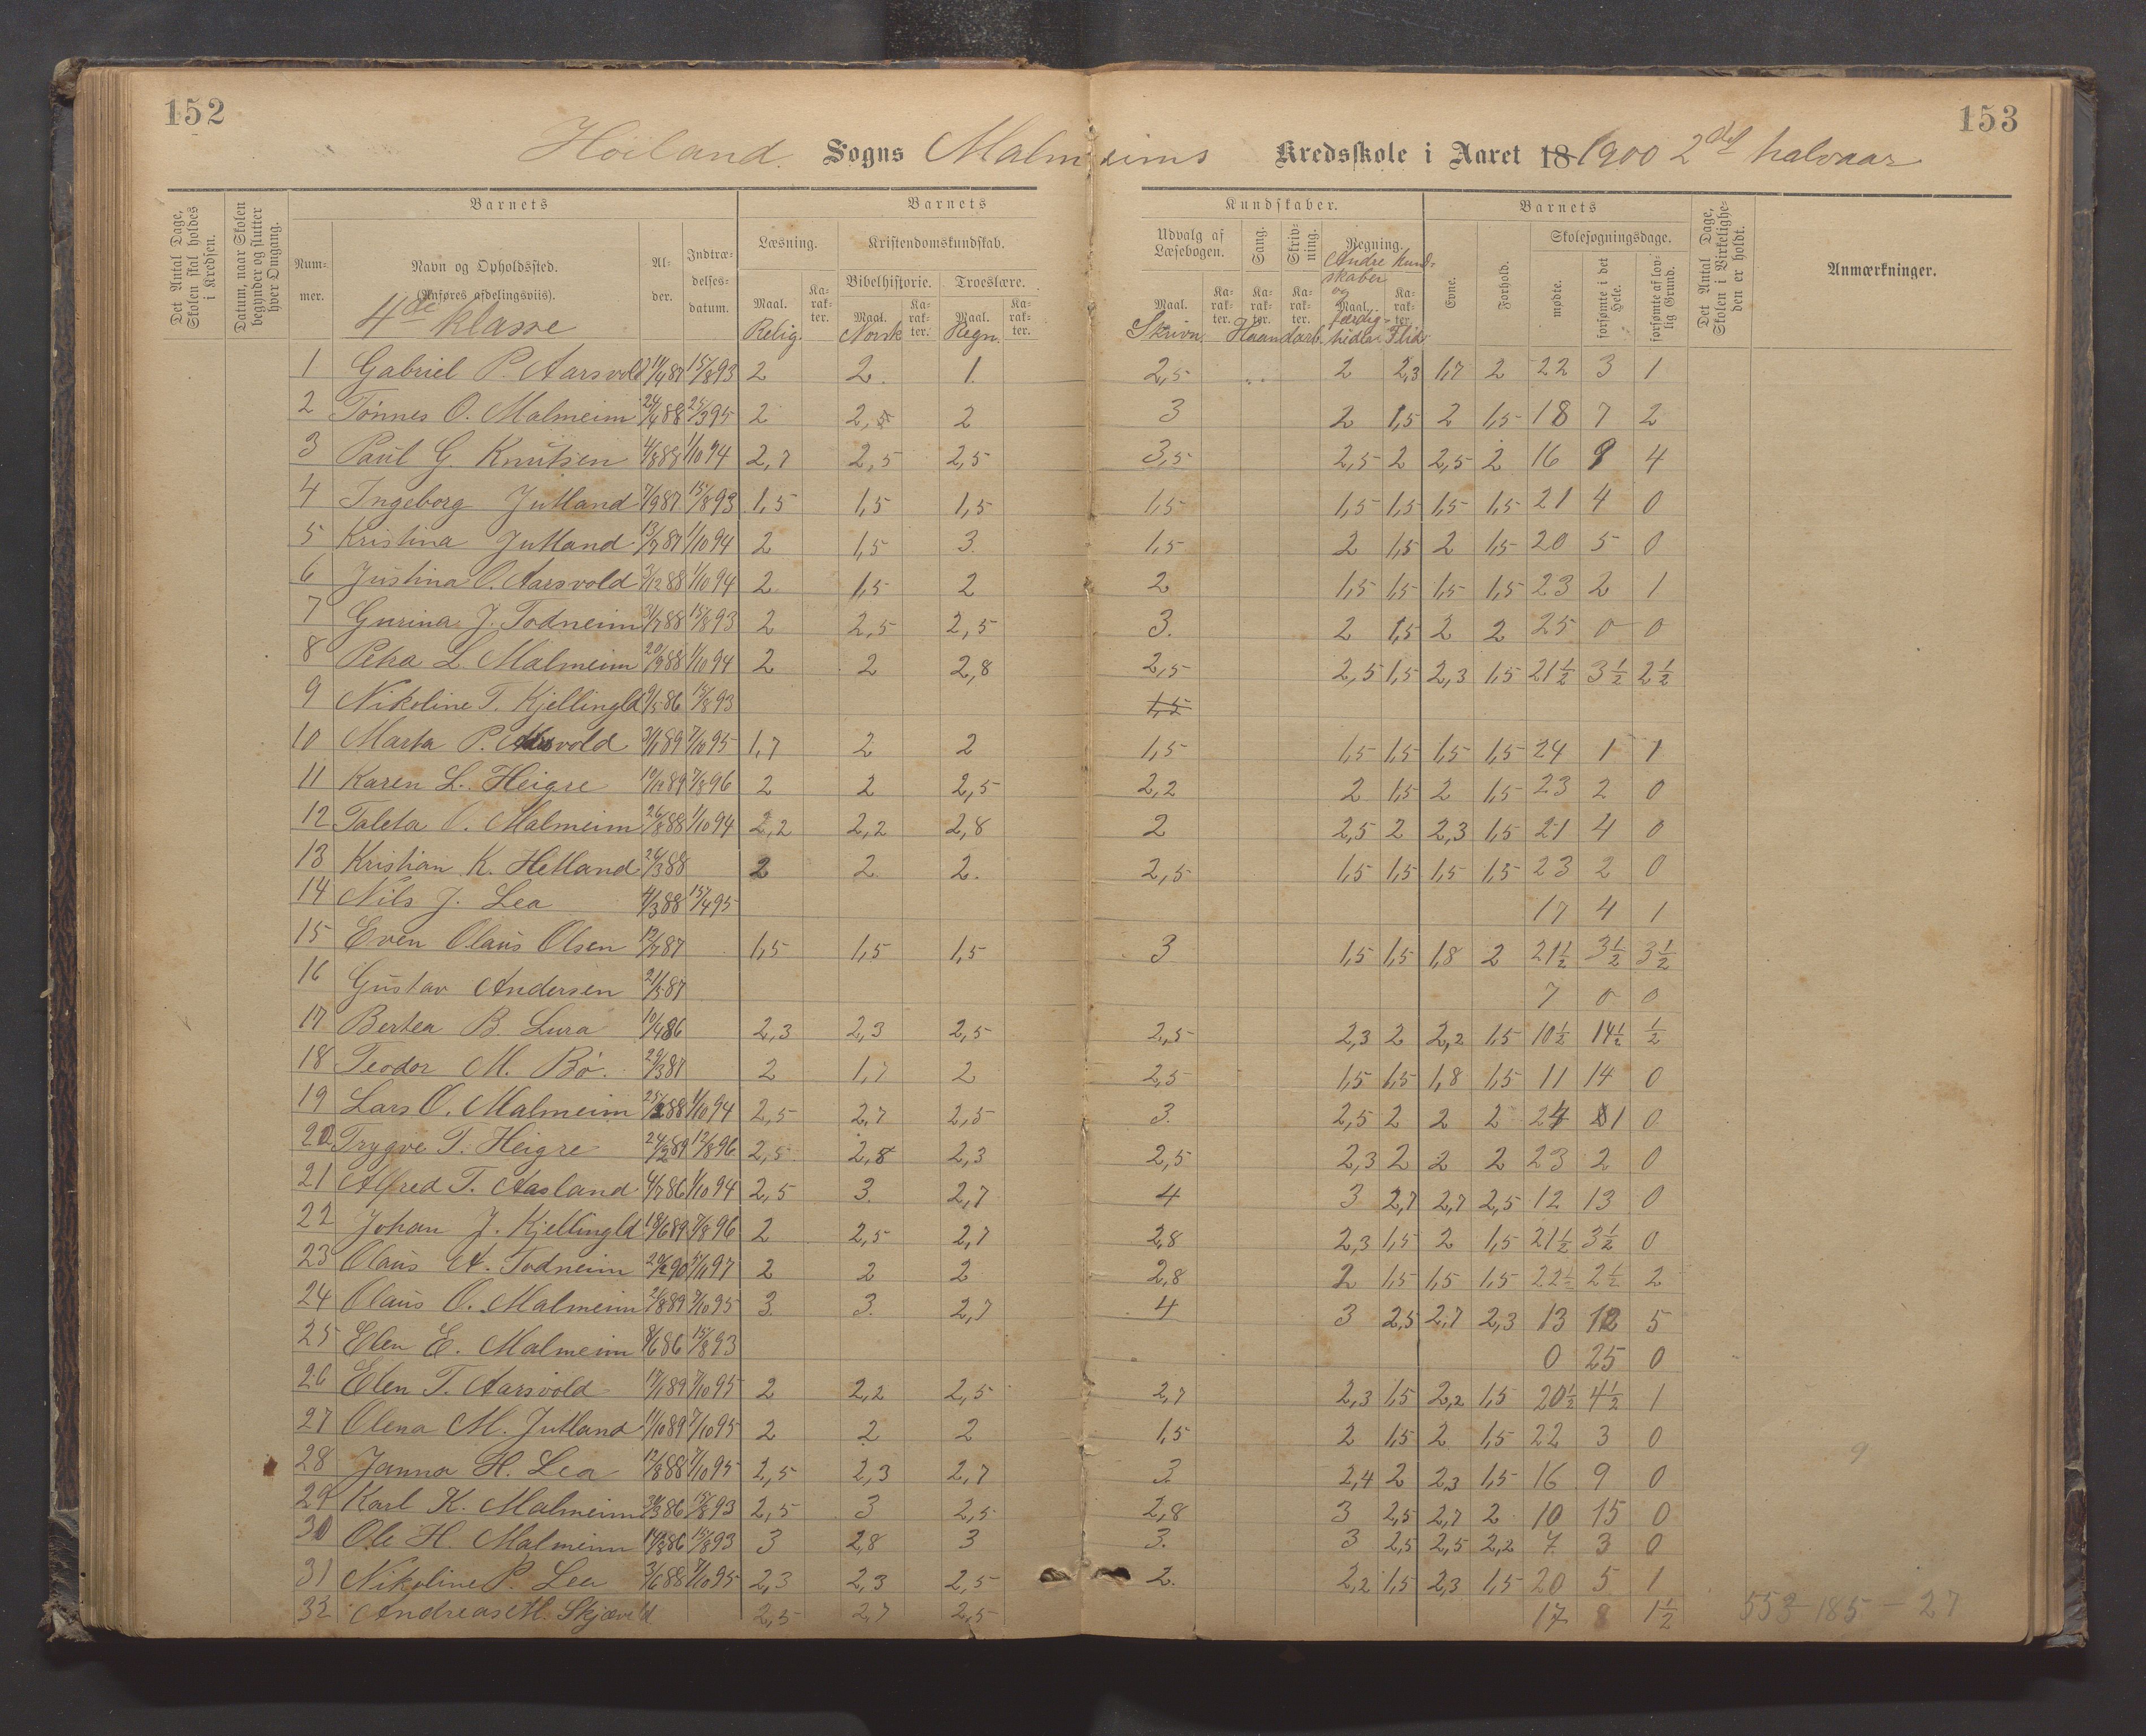 152
153
Höiland Sogns Malmeims Kredsskole i Aaret 18 1900 2det halvaar
Det Antal Dage, Skolen skal holdes i Kredsen.
Datum, naar Skolen begynder og slutter hver Omgang.
Barnets
Nummer.
Navn og Opholdssted.
(Anføres afdelingsviis).
4de klasse
Alder.
Indtrædelsesdatum.
Barnets
Læsning.
Maal. Karakter.
Relig.
Kristendomskundskab.
Bibelhistorie. Troeslære.
Maal. Karakter. Maal. Karakter.
Norsk Regn.
Kundskaber.
Udvalg af Læsebogen.
Maal. Karakter.
Skrivn.
Sang. Karakter.
Skrivning. Karakter.
Haandarb.
Regning.
Maal. Karakter.
Andre Kundskaber og færdigheder Flid
Barnets
Evne.
Forhold.
Skolesøgningsdage.
mødte. forsømte i det Hele. forsømte af lovlig Grund.
Det Antal Dage, Skolen i Virkeligheden er holdt.
Anmærkninger.
1 Gabriel P. Aarsvold 87 15/8 93 2 2 1 2,5 2 2,3 1,7 2 22 3 1
2 Tönnes O. Malmeim 24/4 88 25/3 95 2 2,5 2 3 2 1,5 2 1,5 18 7 2
3 Paul G. Knutsen 4/8 88 1/10 94 2,7 2,5 2,5 3,5 2,5 2 2,5 2 16 9 4
4 Ingeborg Jutland 7/9 87 15/8 93 1,5 1,5 1,5 1,5 1,5 1,5 1,5 1,5 21 4 0
5 Kristina Jutland 87 1/10 94 2 1,5 3 1,5 2 1,5 2 1,5 20 5 0
6 Justina O. Aarsvold 3/12 88 1/10 94 2 1,5 2 2 1,5 1,5 1,5 1,5 23 2 1
7 Gurina J. Todneim 31/7 88 15/8 93 2 2,5 2,5 3 2 1,5 2 2 25 0 0
8 Petra L. Malmeim 20/9 88 1/10 94 2 2 2,8 2,5 2,5 1,5 2,3 1,5 21½ 3½ 2½
9 Nikoline T. Kjellingld 9/5 86 15/8 93 1,5
10 Marta P. Aarsvold 89 7/10 95 1,7 2 2 1,5 1,5 1,5 1,5 1,5 24 1 1
11 Karen L. Heigre 10/12 89 7/8 96 2 2 2,5 2,2 2 1,5 2 1,5 23 2 0
12 Taleta O. Malmeim 26/8 88 1/10 94 2,2 2,2 2,8 2 2,5 2 2,3 1,5 21 4 0
13 Kristian K. Hetland 26/3 88 2 2 2 2,5 1,5 1,5 1,5 1,5 23 2 0
14 Nils J. Lea 4/3 88 15/4 95 17 4 1
15 Even Olaus Olsen 12/7 87 1,5 1,5 1,5 3 1,5 1,5 1,8 2 21½ 3½ 3½
16 Gustav Andersen 21/5 87 7 0 0
17 Bertea B. Lura 10/4 86 2,3 2,3 2,5 2,5 2,3 2 2,2 1,5 10½ 14½ ½
18 Teodor M. Bö. 29/3 87 2 1,7 2 2,5 1,5 1,5 1,8 1,5 11 14 0
19 Lars O. Malmeim 88 1/10 94 2,5 2,7 2,5 3 2,5 2 2 2 24 1 0
20 Trygve T. Heigre 24/2 89 12/8 96 2,5 2,8 2,3 2,5 2,3 2 2 2 23 2 0
21 Alfred T. Aasland 4/7 86 1/10 94 2,5 3 2,7 4 3 2,7 2,7 2,5 12 13 0
22 Johan J. Kjellingld 18/6 89 7/8 96 2 2,5 2,7 2,8 2,3 1,5 2 1,5 21½ 3½ 0
23 Olaus A. Todneim 90 97 2 2 2 2,8 2 1,5 1,5 1,5 22½ 2½ 2
24 Olaus O. Malmeim 89 7/10 95 3 3 2,7 4 3 2,5 2,7 2,3 13 12 5
25 Elen E. Malmeim 8/6 86 15/8 93 0 25 0
26 Elen T. Aarsvold 17/1 89 7/10 95 2 2,2 2,5 2,7 2,3 1,5 2,2 1,5 20½ 4½ 1
27 Olena M. Jutland 11/10 89 7/10 95 2 2 2 1,5 2 1,5 2 1,5 22 3 0
28 Janna H. Lea 12/8 88 7/10 95 2,5 2,3 2,7 3 2,4 2 2,3 1,5 16 9 0
9
29 Karl K. Malmeim 86 15/8 93 2,5 3 2,5 2,8 3 2,5 2,7 2 10 15 0
30 Ole H. Malmeim 86 15/8 93 3 2,8 3 3 3 2,5 2,5 2,2 7 3 0
31 Nikoline P. Lea 3/6 88 7/10 95 2,3 2,3 2,5 2 2,2 1,5 2,3 1,5 20 5 1
32 Andreas M. Skjæveld 2,5 2,7 2,5 17 8 1½
553 - 185 - 27